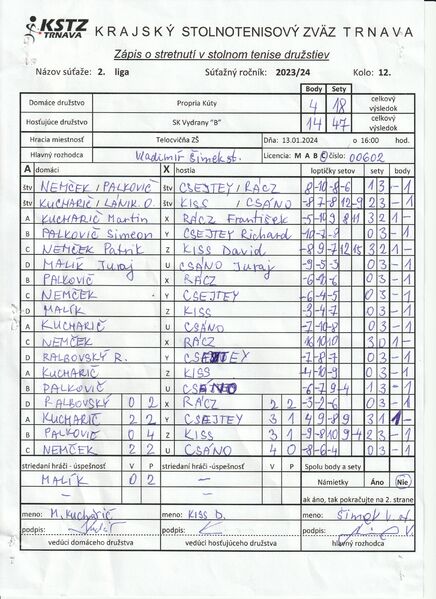 KSTZ TRNAVA KRAJSKÝ STOLNOTENISOVÝ ZVÄZ TRNAVA
Zápis o stretnutí v stolnom tenise družstiev
Názov súťaže: 2. liga Súťažný ročník: 2023/24 Kolo: 12.
Body Sety
Domáce družstvo Propria Kúty 4 18 celkový výsledok
Hosťujúce družstvo SK Vydrany "B" 14 47 celkový výsledok
Hracia miestnosť Telocvičňa ZŠ Dňa: 13.01.2024 o 16:00 hod.
Hlavný rozhodca Vladimír Šimek st. Licencia: M A B C číslo: 00602
A domáci X hostia loptičky setov sety body
štv NEMČEK / PALKOVIČ štv CSEJTEY / RÁCZ 8-10-8-6 1 3 - 1
štv KUCHARIČ / LÁNIK O. štv KISS / CSÁNÓ -8 7-8 12-9 2 3 - 1
A KUCHARIČ Martin X RÁCZ František 3 2 1 -
B PALKOVIČ Simeon Y CSEJTEY Richard -10-7-8 0 3 - 1
C NEMČEK Patrik Z KISS David -8 9 7 12 15 3 2 1 -
D MALÍK Juraj U CSÁNO Juraj -9-5-3 0 3 - 1
B PALKOVIČ X RÁCZ 0 3 - 1
C NEMČEK Y CSEJTEY -6-4-5 0 3 - 1
D MALÍK Z KISS -3-4-7 0 3 - 1
A KUCHARIČ U CSÁNO -7-10-8 0 3 - 1
C NEMČEK X RÁCZ 16 10 10 3 0 1 -
D RALBOVSKÝ R. Y CSEJTEY -7-8-7 0 3 - 1
A KUCHARIČ Z KISS -4-10-9 0 3 - 1
B PALKOVIČ U CSÁNO -6-7 9-4 1 3 - 1
D RALBOVSKÝ 0 2 X RÁCZ 2 2 -3-2-6 0 3 - 1
A KUCHARIČ 2 2 Y CSEJTEY 3 1 4 9-8 9 3 1 1 -
B PALKOVIČ 0 4 Z KISS 3 1 -9-8 10 9-4 2 3 - 1
C NEMČEK 2 2 U CSÁNO 4 0 -8-6-4 0 3 - 1
striedaní hráči - úspešnosť V P striedaní hráči - úspešnosť V P Spolu body a sety
MALÍK 0 2 - Námietky Áno Nie
- - ak áno, tak pokračujte na 2. strane
meno: M. Kucharič meno: KISS D. meno: ŠIMEK V. st
podpis: podpis: podpis:
vedúci domáceho družstva vedúci hosťujúceho družstva hlavný rozhodca